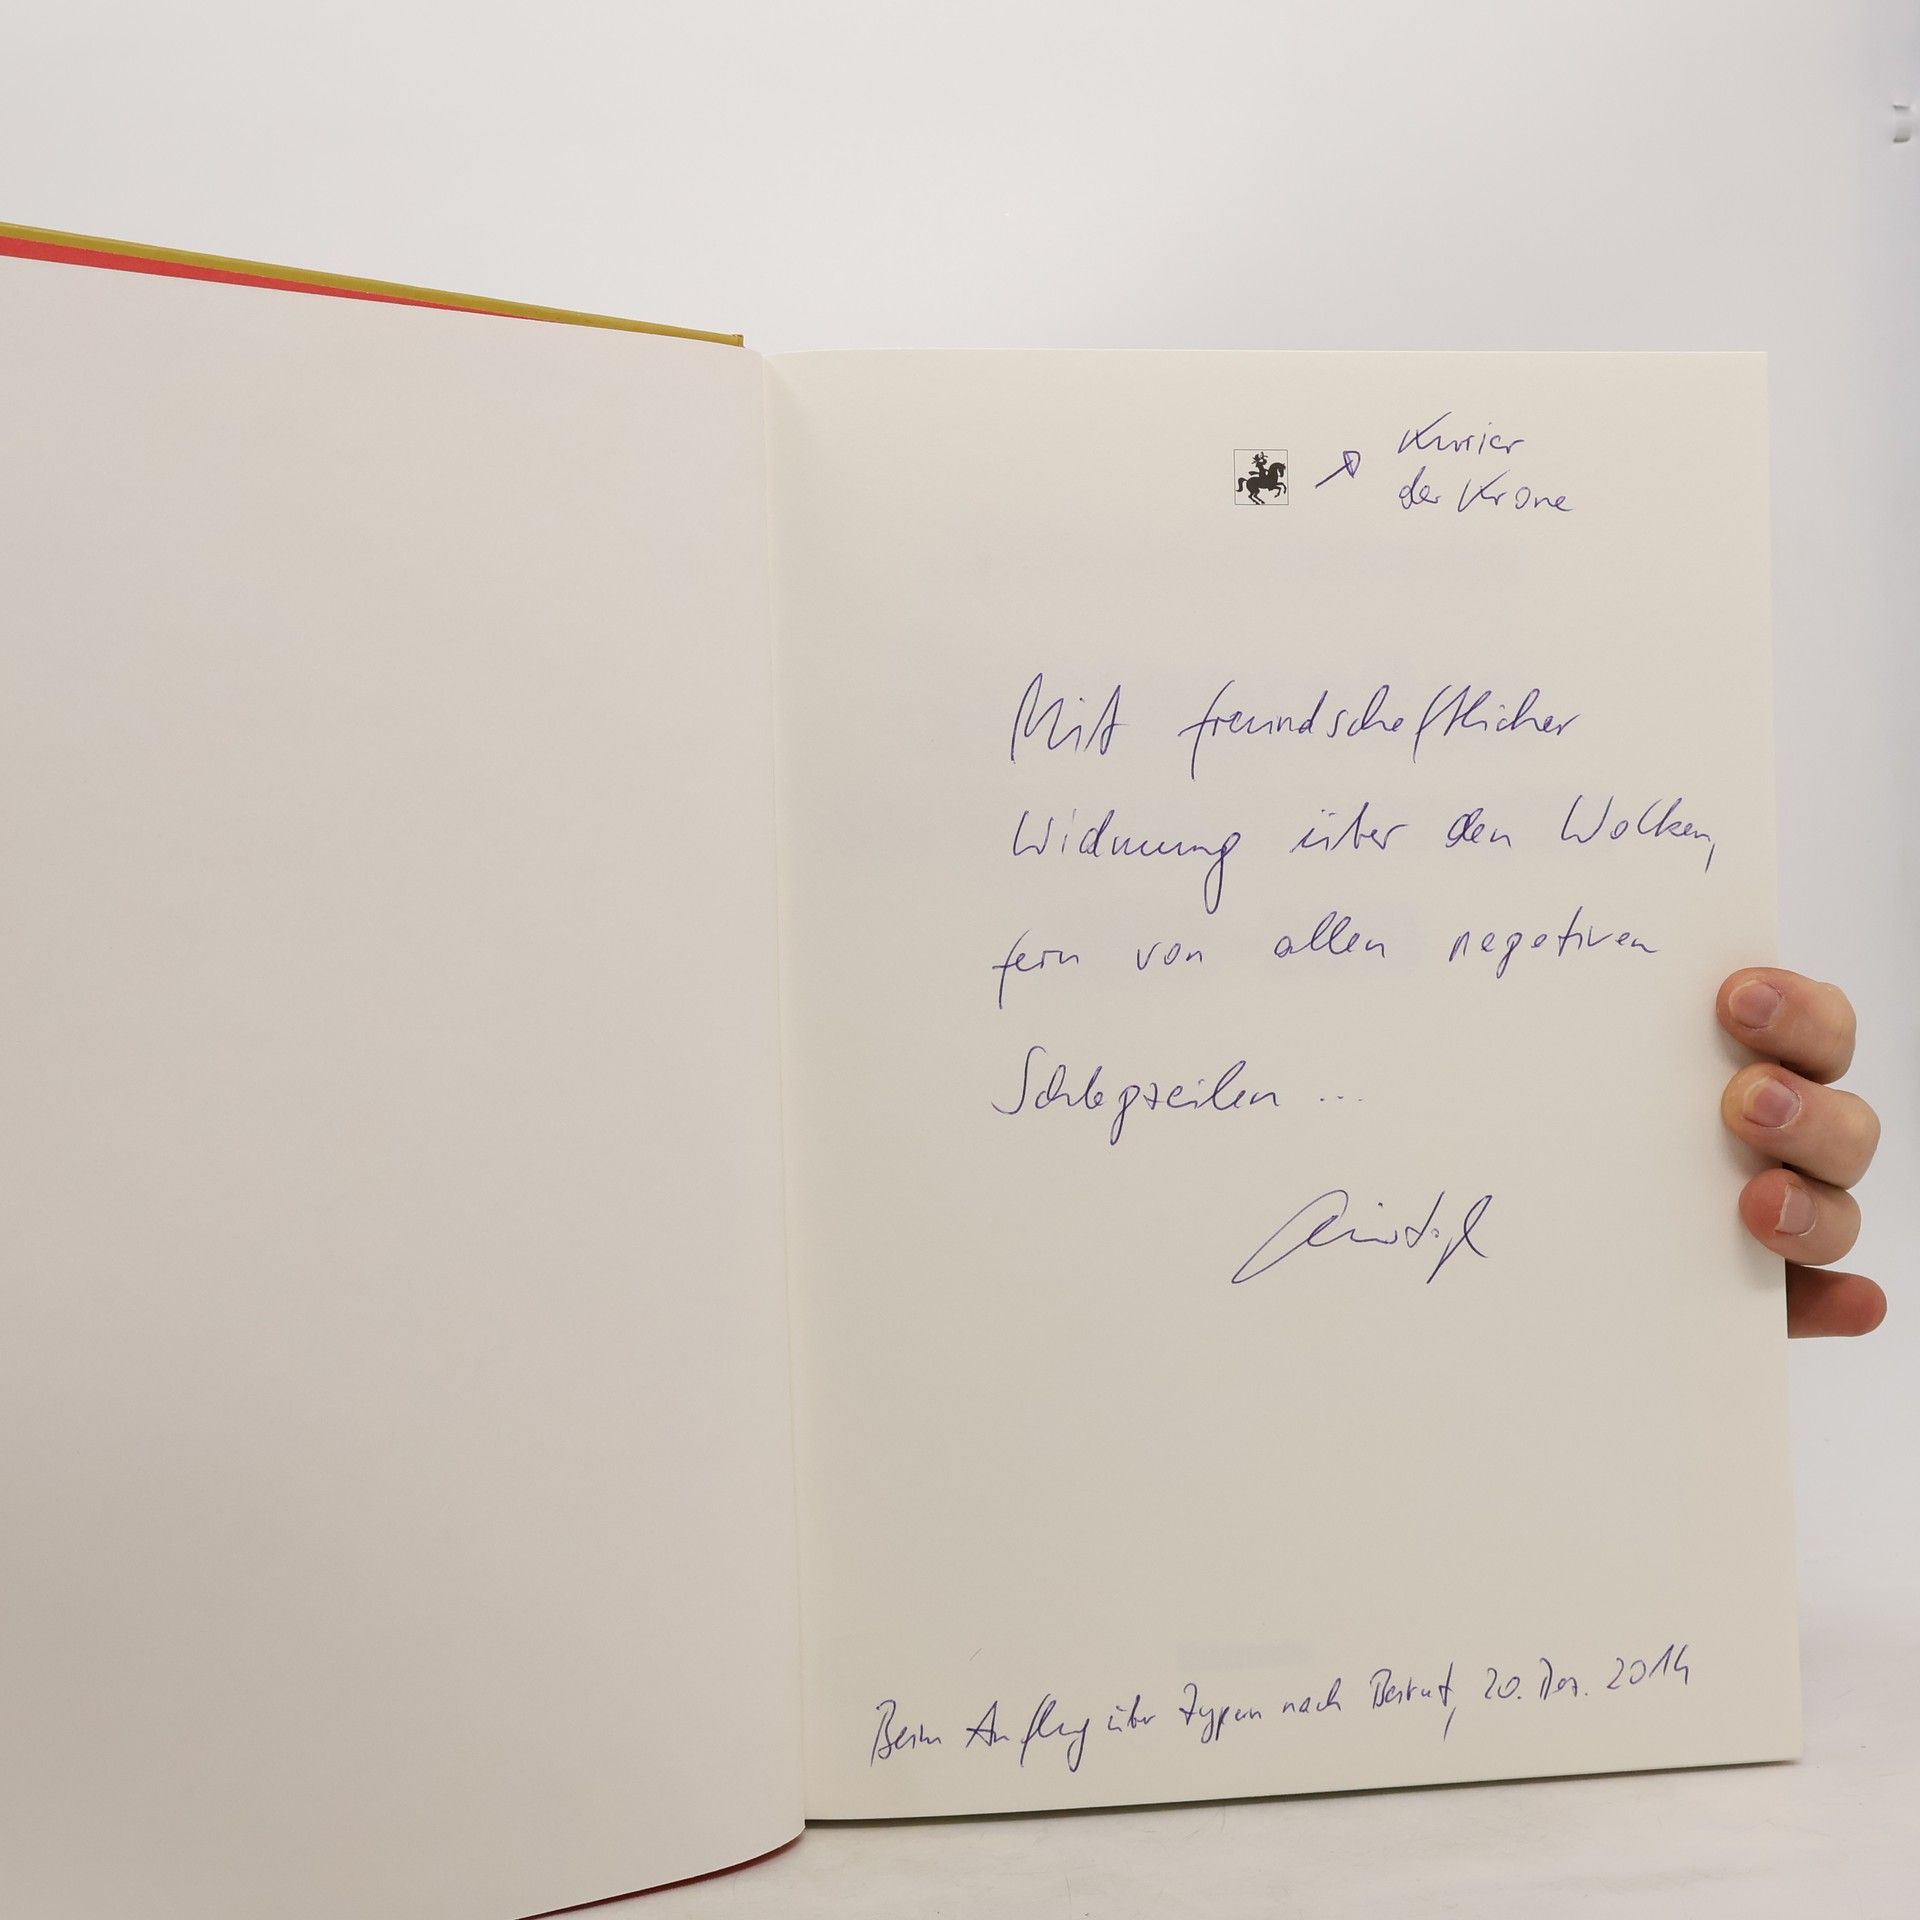 Kurier
der Krone
Mit freundschaftlicher
Widmung über den Wolken,
fern von allen negativen
Schlagzeilen ...
Christoph
Beim Anflug über Zypern nach Beirut, 20. Dez. 2014